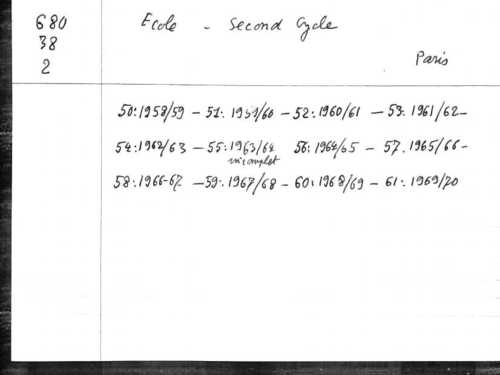 680
38
2
Ecole - Second Cycle
Paris
50:1958/59 - 51:1959/60 - 52:1960/61 - 53:1961/62-
54:1962/63 - 55:1963/64 56:1964/65 - 57.1965/66-
incomplet
58:1966-67 - 59:1967/68 - 60:1968/69 - 61:1969/70